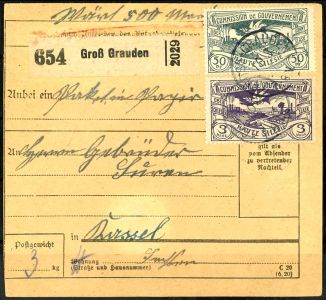 Wert 500 Mark
654 Groß Grauden 2029
COMMISSION DE GOUVERNEMENT
50 HAUTE SILÉSIE 50
COMMISSION DE GOUVERNEMENT
3 HAUTE SILÉSIE 3
Anbei ein Paket in Papier
An Herren Gebrüder
gilt als
vom Absender
zu vertretender
Nachteil.
in Kassel
Postgewicht
3 kg
Wohnung
(Straße und Hausnummer)
C 20
(6.20)